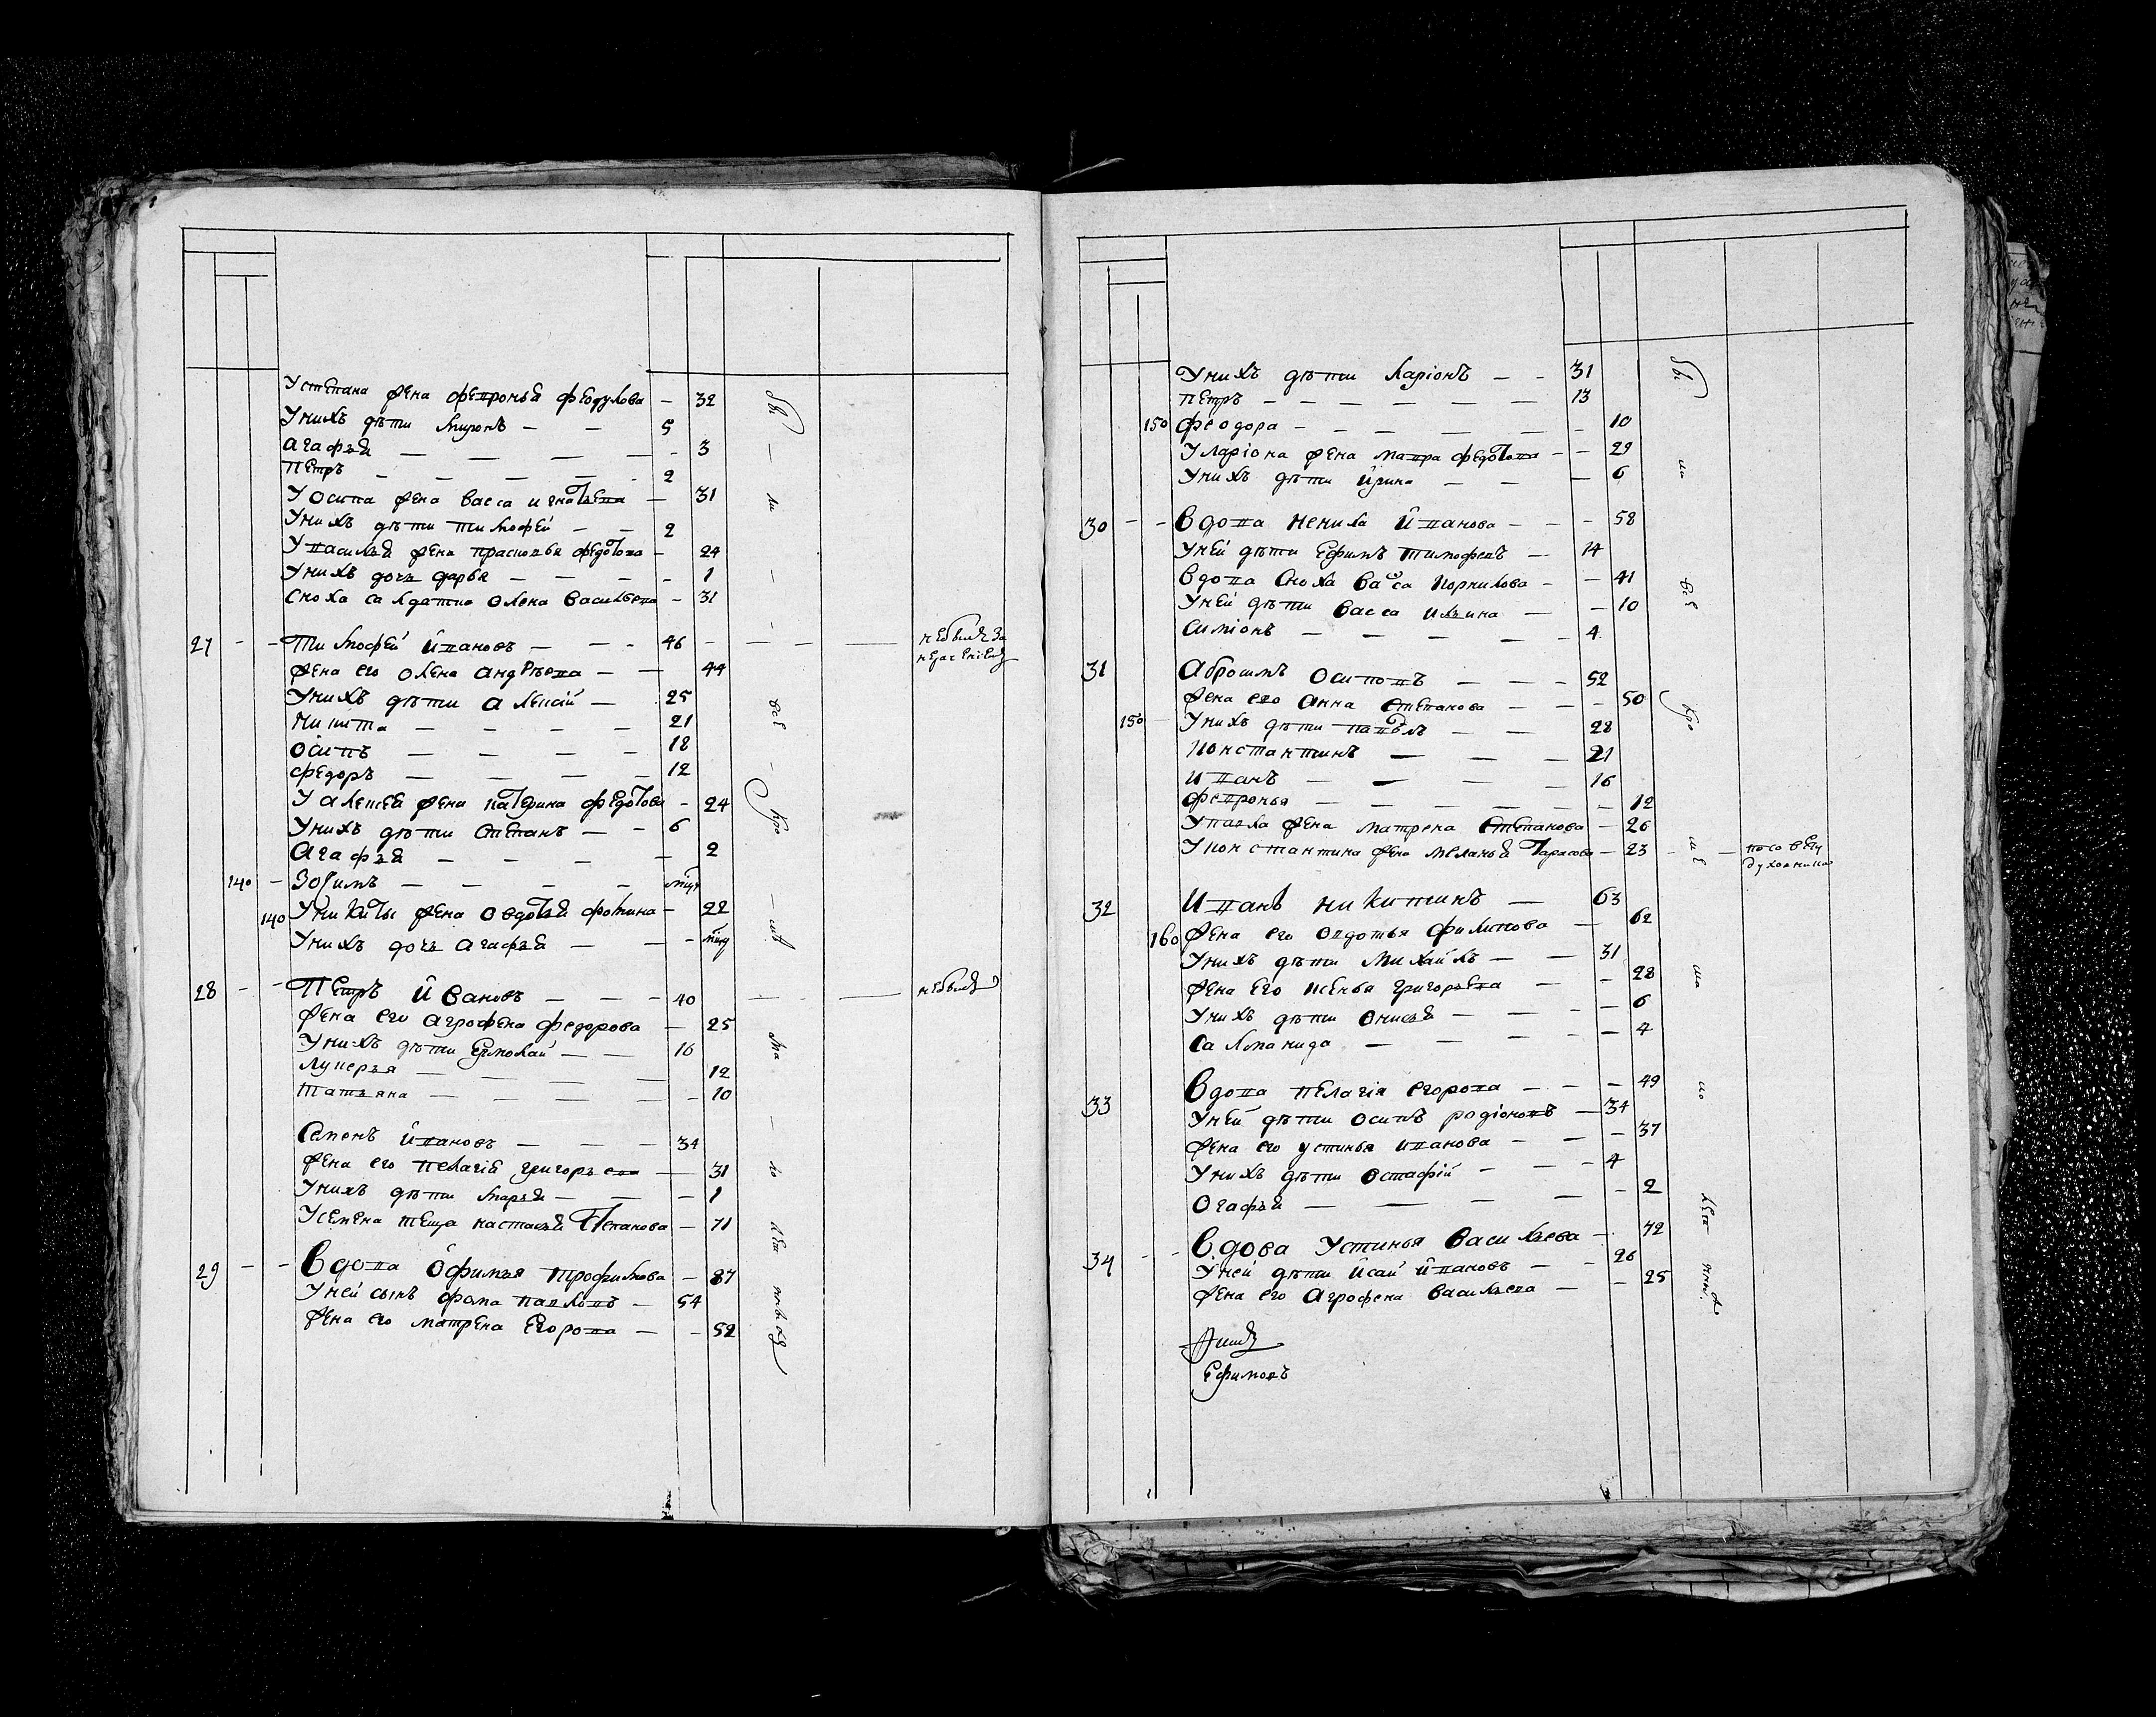 У степана жена февроньй феодулова — 32
У нихъ дѣти миронъ — — 5
агафьй — — — — 3
петръ — — — — 2
У осипа жена васса игнатьева — 31
У нихъ дѣти тимофей — — 2
У василья жена прасковья федотова — 24
У нихъ дочь дарья — — — 1
сноха салдатка олена васильева — 31
27 — — Тимофей ивановъ — — — 46 — — — не былъ за
нерасениемъ
жена его олена андрѣева — — 44
У нихъ дѣти алексiй — 25
никита — — — — 21
осипъ — — — — 18
федоръ — — — — 12
У алексей жена катерина федотова — 24
У нихъ дѣти степанъ — — 6
Агафьй — — — — 2
140 — Зосимъ — — — —
140 У никиты жена овдотьй фомина — 22
У нихъ дочь агафьй — — —
28 — — Петръ ивановъ — — — 40 — — не былъ
жена его агрофена федорова — 25
У нихъ дѣти ермолай — — 16
лукерья — — — — 12
татьяна — — — — 10
Семенъ ивановъ — — — 34
жена его пелагiй григорьева — 31
У нихъ дѣти марьй — — — 1
У семена теща настасьй степанова — 71
29 — — Вдова офимья трофимова — 87
У ней сынъ фома павловъ — 54
жена его матрена егорова — — 52
У нихъ дѣти ларiонъ — — 31
петръ — — — — — — 13
150 феодора — — — — — — 10
У ларiона жена мавра федотова — — 29
У нихъ дѣти ирина — — — 6
30 — — Вдова ненила иванова — — — 58
У ней дѣти ефимъ тимофеевъ — 14
вдова сноха васса корнилова — — 41
У ней дѣти васса ильина — — 10
симiонъ — — — — — 4
31 Абросимъ осиповъ — — — 52
жена его анна степанова — — — 50
150 — У нихъ дѣти павелъ — — 28
константинъ — — — 21
иванъ — — — 16
февронья — — — — — — 12
У павла жена матрена степанова — 26
У константина жена меланьй тарасова — 23 — — по совѣту
духовника
32 Иванъ никитинъ — 63
160 жена его овдотья филипова — 62
У нихъ дѣти михайлъ — — 31
жена его ксенья григорьева — — 28
У нихъ дѣти онисьй — — — — 6
саломанида — — — — — 4
33 Вдова пелагiя егорова — — — 49
У ней дѣти осипъ родiоновъ — 34
жена его устинья иванова — — — 37
У нихъ дѣти остафiй — — — 4
огафьй — — — — — 2
34 — — Вдова устинья васильева — 72
У ней дѣти исай ивановъ — — 26
жена его агрофена васильева — — 25
Ефимовъ